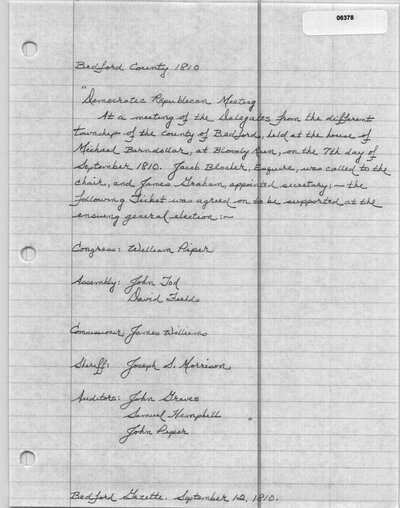 06378
Bedford County 1810
"Democratic Republican Meeting
At a meeting of the Delegates from the different
townships of the county of Bedford, held at the house of
Michael Barndollar, at Bloody Run, on the 7th day of
September 1810. Jacob Blocher, Esquire, was called to the
chair, and James Graham, appointed secretary; — the
following Ticket was agreed on to be supported at the
ensuing general election:—
Congress: William Piper
Assembly: John Tod
David Fields
Commissioner: James Williams
Sheriff: Joseph S. Morrison
Auditors: John Graves
Samuel Hemphill
John Piper "
Bedford Gazette. September 12, 1810.